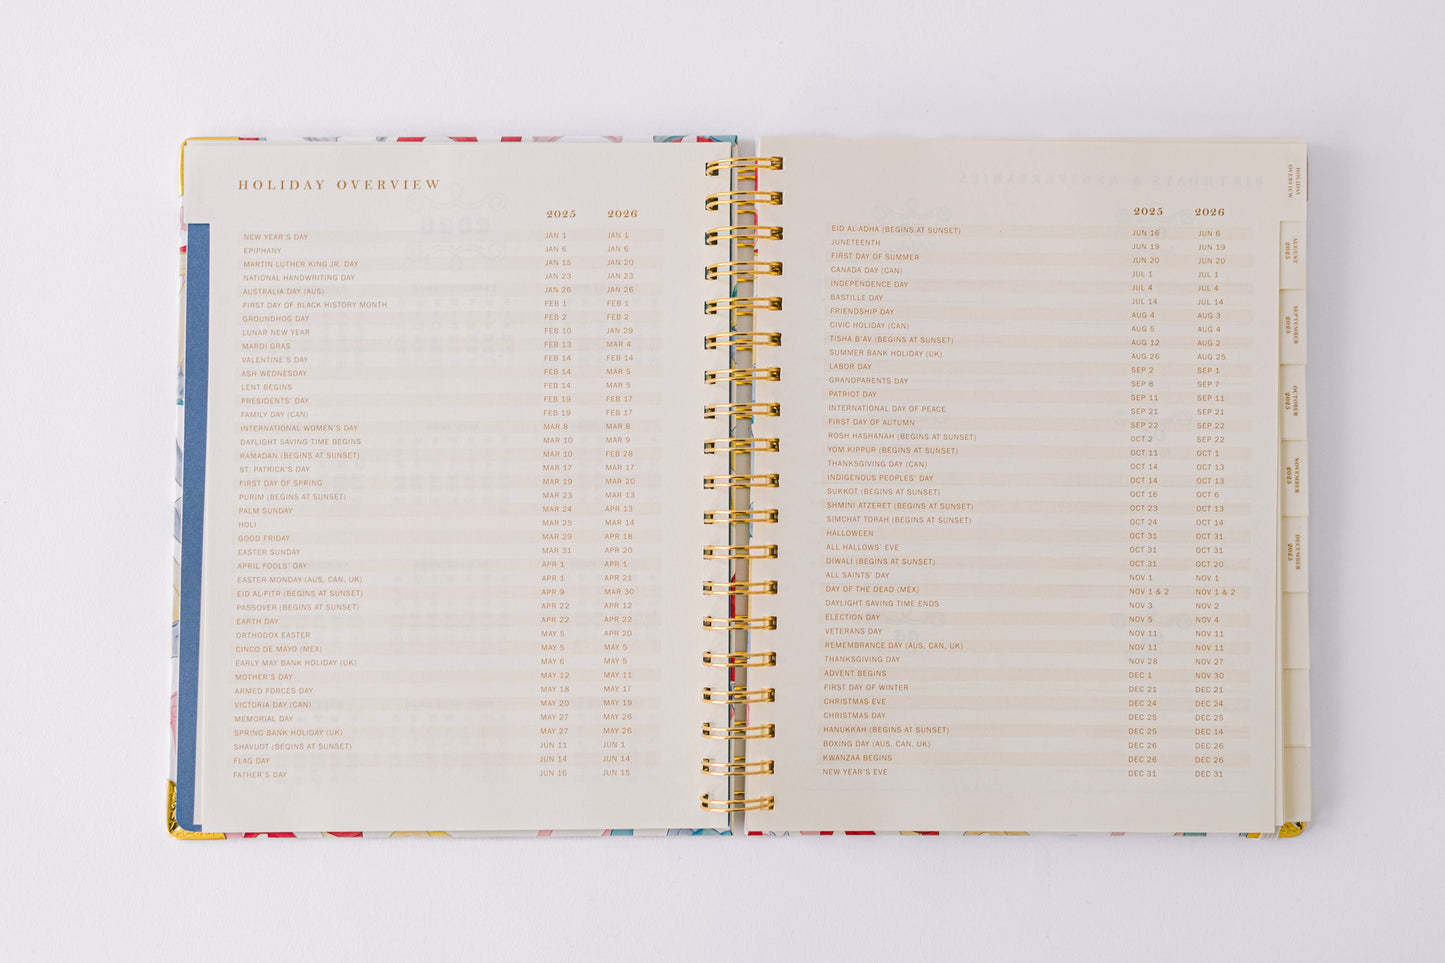 HOLIDAY OVERVIEW
2025 2026
NEW YEAR'S DAY JAN 1 JAN 1
EPIPHANY JAN 6 JAN 6
MARTIN LUTHER KING JR. DAY JAN 15 JAN 20
NATIONAL HANDWRITING DAY JAN 23 JAN 23
AUSTRALIA DAY (AUS) JAN 26 JAN 26
FIRST DAY OF BLACK HISTORY MONTH FEB 1 FEB 1
GROUNDHOG DAY FEB 2 FEB 2
LUNAR NEW YEAR FEB 10 JAN 29
MARDI GRAS FEB 13 MAR 4
VALENTINE'S DAY FEB 14 FEB 14
ASH WEDNESDAY FEB 14 MAR 5
LENT BEGINS FEB 14 MAR 5
PRESIDENTS' DAY FEB 19 FEB 17
FAMILY DAY (CAN) FEB 19 FEB 17
INTERNATIONAL WOMEN'S DAY MAR 8 MAR 8
DAYLIGHT SAVING TIME BEGINS MAR 10 MAR 9
RAMADAN (BEGINS AT SUNSET) MAR 10 FEB 28
ST. PATRICK'S DAY MAR 17 MAR 17
FIRST DAY OF SPRING MAR 19 MAR 20
PURIM (BEGINS AT SUNSET) MAR 23 MAR 13
PALM SUNDAY MAR 24 APR 13
HOLI MAR 25 MAR 14
GOOD FRIDAY MAR 29 APR 18
EASTER SUNDAY MAR 31 APR 20
APRIL FOOLS' DAY APR 1 APR 1
EASTER MONDAY (AUS, CAN, UK) APR 1 APR 21
EID AL-FITR (BEGINS AT SUNSET) APR 9 MAR 30
PASSOVER (BEGINS AT SUNSET) APR 22 APR 12
EARTH DAY APR 22 APR 22
ORTHODOX EASTER MAY 5 APR 20
CINCO DE MAYO (MEX) MAY 5 MAY 5
EARLY MAY BANK HOLIDAY (UK) MAY 6 MAY 5
MOTHER'S DAY MAY 12 MAY 11
ARMED FORCES DAY MAY 18 MAY 17
VICTORIA DAY (CAN) MAY 20 MAY 19
MEMORIAL DAY MAY 27 MAY 26
SPRING BANK HOLIDAY (UK) MAY 27 MAY 26
SHAVUOT (BEGINS AT SUNSET) JUN 11 JUN 1
FLAG DAY JUN 14 JUN 14
FATHER'S DAY JUN 16 JUN 15
2025 2026
EID AL-ADHA (BEGINS AT SUNSET) JUN 16 JUN 6
JUNETEENTH JUN 19 JUN 19
FIRST DAY OF SUMMER JUN 20 JUN 20
CANADA DAY (CAN) JUL 1 JUL 1
INDEPENDENCE DAY JUL 4 JUL 4
BASTILLE DAY JUL 14 JUL 14
FRIENDSHIP DAY AUG 4 AUG 3
CIVIC HOLIDAY (CAN) AUG 5 AUG 4
TISHA B'AV (BEGINS AT SUNSET) AUG 12 AUG 2
SUMMER BANK HOLIDAY (UK) AUG 26 AUG 25
LABOR DAY SEP 2 SEP 1
GRANDPARENTS DAY SEP 8 SEP 7
PATRIOT DAY SEP 11 SEP 11
INTERNATIONAL DAY OF PEACE SEP 21 SEP 21
FIRST DAY OF AUTUMN SEP 22 SEP 22
ROSH HASHANAH (BEGINS AT SUNSET) OCT 2 SEP 22
YOM KIPPUR (BEGINS AT SUNSET) OCT 11 OCT 1
THANKSGIVING DAY (CAN) OCT 14 OCT 13
INDIGENOUS PEOPLES' DAY OCT 14 OCT 13
SUKKOT (BEGINS AT SUNSET) OCT 16 OCT 6
SHMINI ATZERET (BEGINS AT SUNSET) OCT 23 OCT 13
SIMCHAT TORAH (BEGINS AT SUNSET) OCT 24 OCT 14
HALLOWEEN OCT 31 OCT 31
ALL HALLOWS' EVE OCT 31 OCT 31
DIWALI (BEGINS AT SUNSET) OCT 31 OCT 20
ALL SAINTS' DAY NOV 1 NOV 1
DAY OF THE DEAD (MEX) NOV 1 & 2 NOV 1 & 2
DAYLIGHT SAVING TIME ENDS NOV 3 NOV 2
ELECTION DAY NOV 5 NOV 4
VETERANS DAY NOV 11 NOV 11
REMEMBRANCE DAY (AUS, CAN, UK) NOV 11 NOV 11
THANKSGIVING DAY NOV 28 NOV 27
ADVENT BEGINS DEC 1 NOV 30
FIRST DAY OF WINTER DEC 21 DEC 21
CHRISTMAS EVE DEC 24 DEC 24
CHRISTMAS DAY DEC 25 DEC 25
HANUKKAH (BEGINS AT SUNSET) DEC 25 DEC 14
BOXING DAY (AUS, CAN, UK) DEC 26 DEC 26
KWANZAA BEGINS DEC 26 DEC 26
NEW YEAR'S EVE DEC 31 DEC 31
HOLIDAY
OVERVIEW
AUGUST
2025
SEPTEMBER
2025
OCTOBER
2025
NOVEMBER
2025
DECEMBER
2025